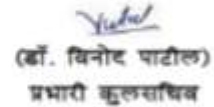 (डॉ. विनोद पाटील)
प्रभारी कुलसचिव